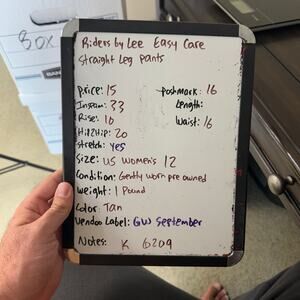 Riders by Lee Easy Care
Straight Leg Pants
Price: 15
Inseam: 33
Rise: 10
Hip2Hip: 20
Stretch: Yes
Size: US Women's 12
Condition: Gently worn pre owned
Weight: 1 Pound
Color: Tan
Vendoo Label: GW September
Notes: K 6209
Poshmark: 16
Length:
Waist: 16
BOX